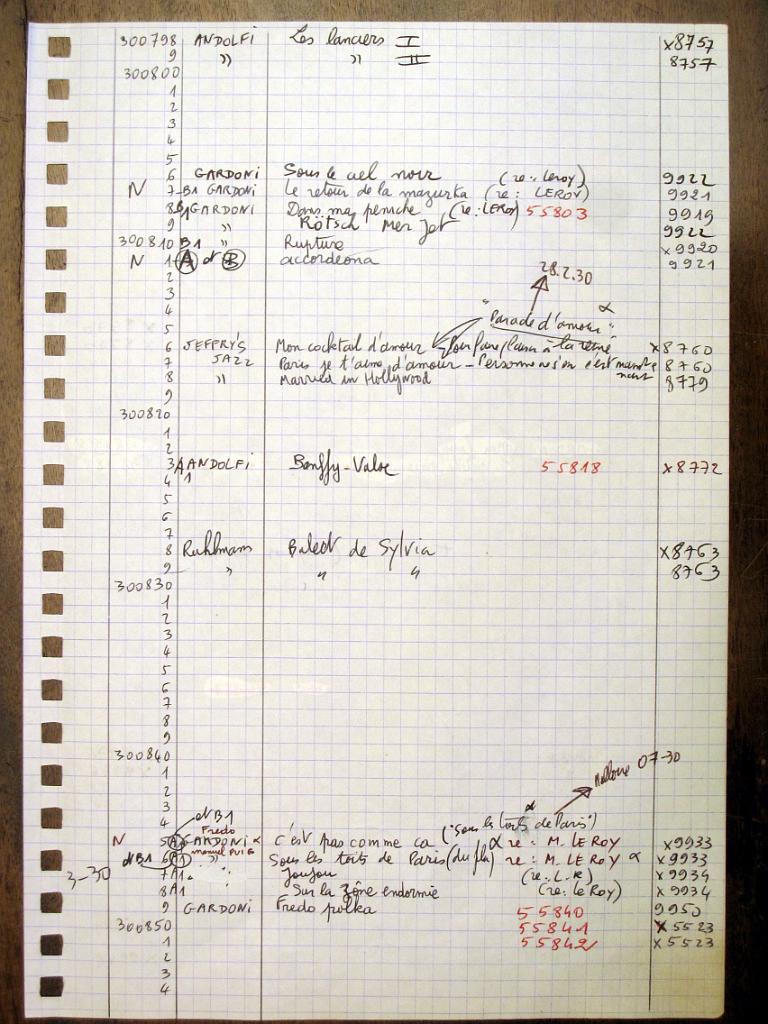 300798 ANDOLFI Les lanciers I x8757
9 " " II 8757
300800
1
2
3
4
5
6 GARDONI Sous le ciel noir (re: Leroy) 9922
N 7-B1 GARDONI Le retour de la mazurka (re: LEROY) 9921
8B1 GARDONI Dans ma peniche (re: LEROY) 55803 9919
9 " Rötsch Mer Jet 9922
300810 B1 " Rupture x9920
N 1 A et B accordeona 9921
2 28.2.30
3
4 "Parade d'amour" α
5
6 JEFFRY'S Mon cocktail d'amour - Pour faire plaisir à la reine x8760
7 JAZZ Paris je t'aime d'amour - Personne n'en 8760
8 " Married in Hollywood 8779
9
300820
1
2
3A ANDOLFI Bouffy-Valse 55818 x8772
4 1
5
6
7
8 Ruhlmann Balect de Sylvia x8763
9 " " " 8763
300830
1
2
3
4
5
6
7
8
9
300840
1 07-30
2
3
4 et B1 ("Sous les toits de Paris") α
N 5 A Fredo GARDONI α c'est pas comme ca α re: M. LEROY x9933
3-30 et B1 6 A1 manuel PUIG " Sous les toits de Paris (du film) re: M. LEROY α x9933
7 A1 " Joujou (re: L.R) x9934
8 A1 Sur la Zône endormie (re: le Roy) x9934
9 GARDONI Fredo polka 55840 9950
300850 55841 x5523
1 55842 x5523
2
3
4